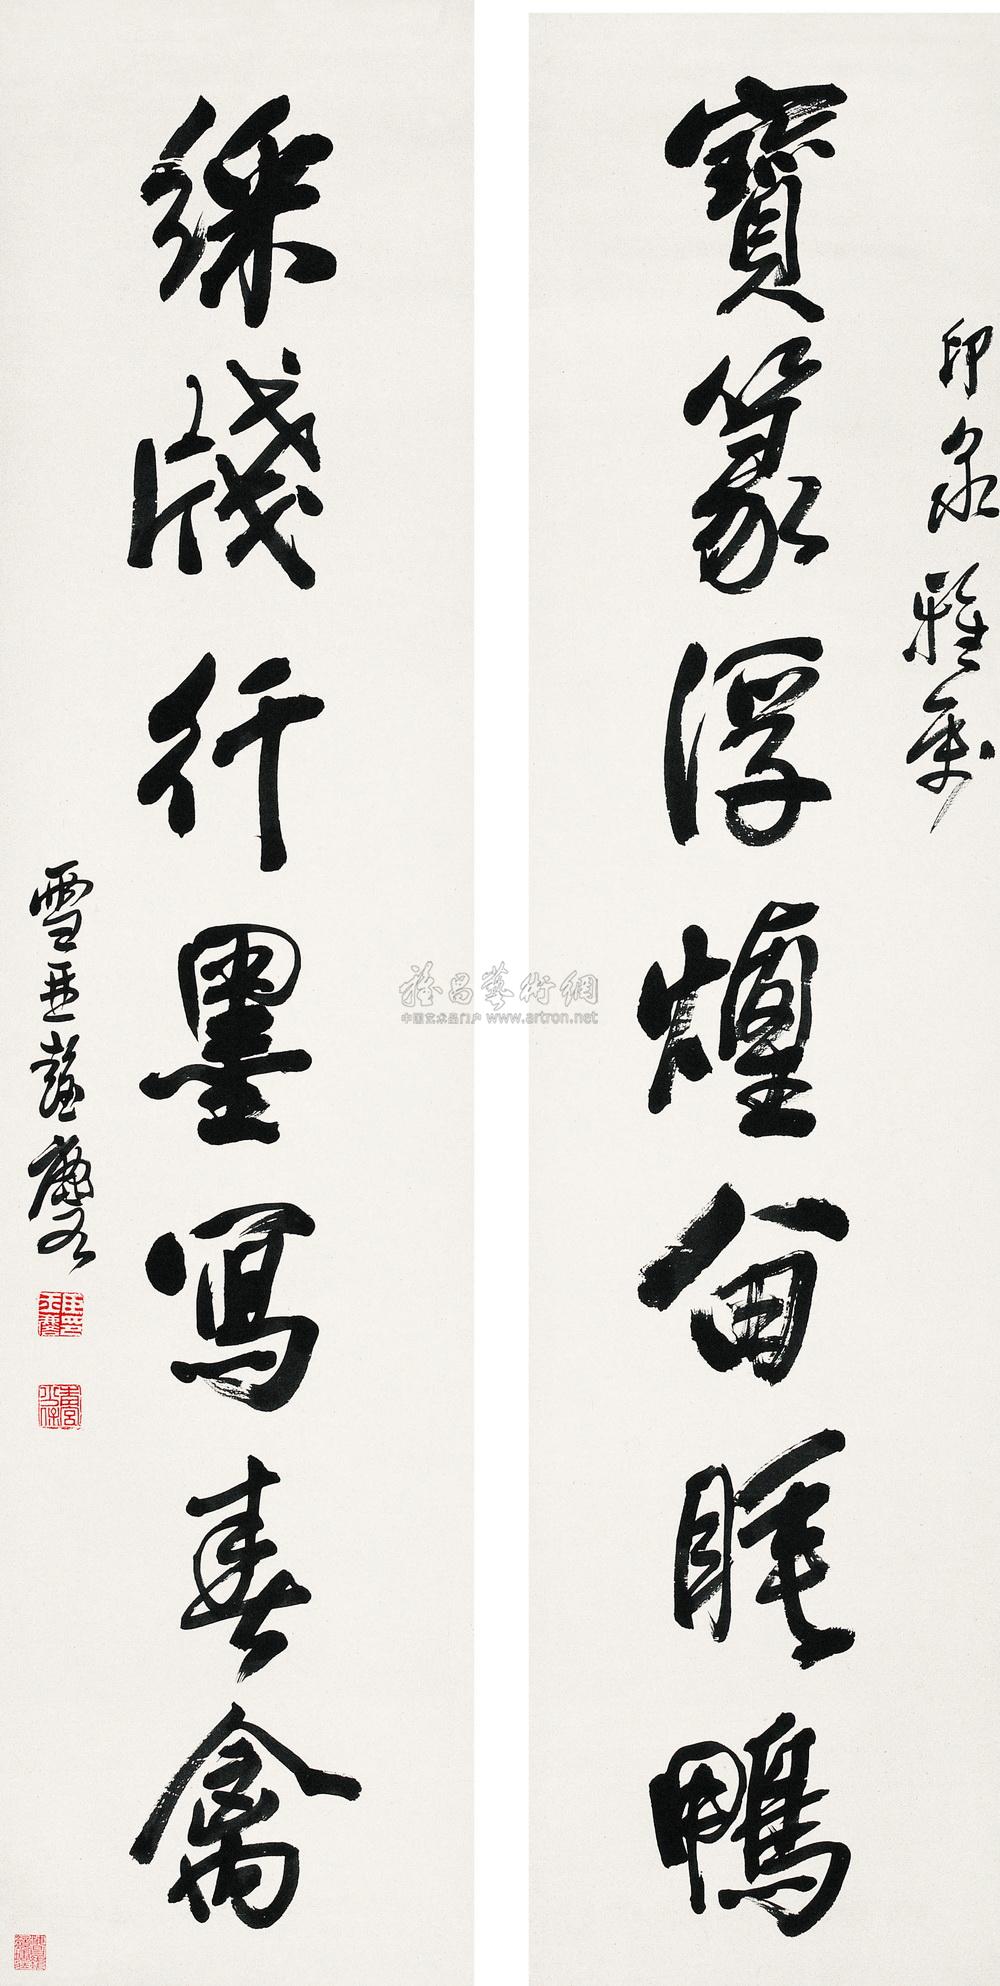 印泉雅屬
寶篆浮煙留睡鴨
綵牋行墨寫春禽
雅昌藝術網
中国艺术品门户 www.artron.net